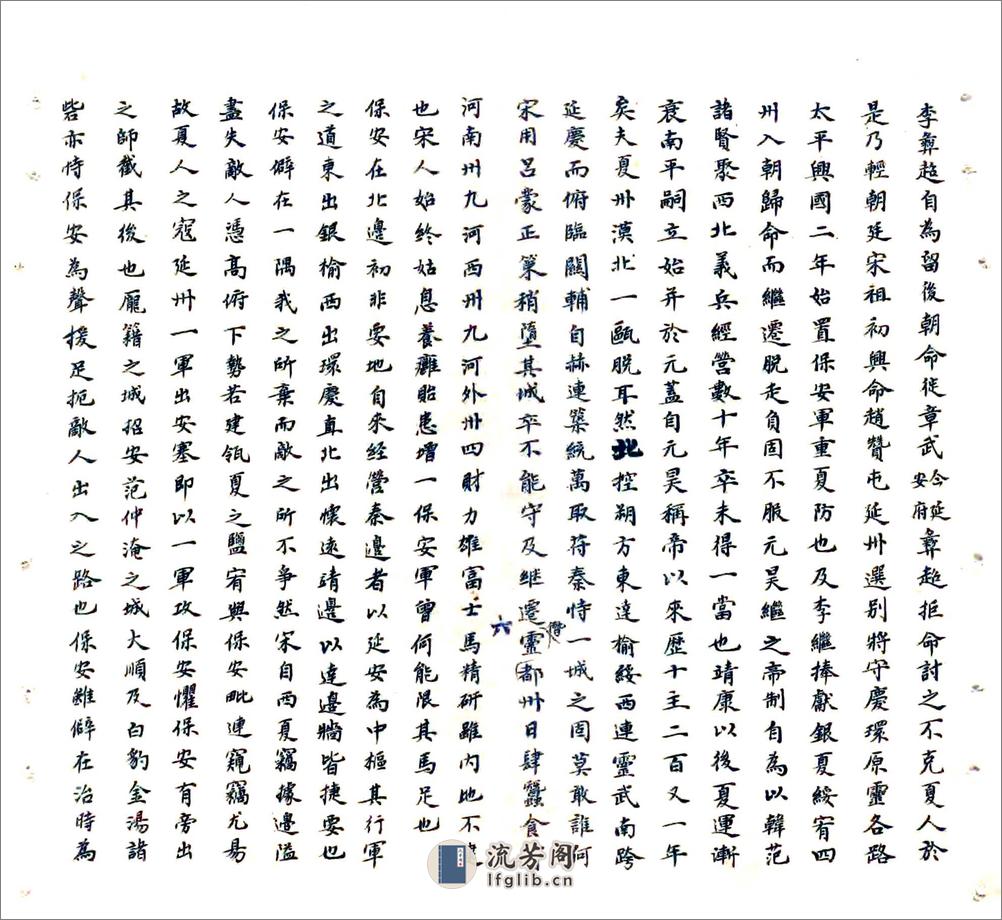 李彝超自為留後朝命徙章武今延安府彝超拒命討之不克夏人於
是乃輕朝廷宋祖初興命趙贊屯延州選別將守慶環原靈各路
太平興國二年始置保安軍重夏防也及李繼捧獻銀夏綏宥四
州入朝歸命而繼遷脫走負固不服元昊繼之帝制自為以韓范
諸賢聚西北義兵經營數十年卒未得一當也靖康以後夏運漸
衰南平嗣立始并於元蓋自元昊稱帝以來歷十主二百又一年
矣夫夏州漠北一甌脫耳然北控朔方東達榆綏西連靈武南跨
延慶而俯臨關輔自赫連築統萬取苻秦恃一城之固莫敢誰何
宋用呂蒙正策稍墮其城卒不能守及继遷靈都州日肆蠶食
六
河南州九河西州九河外州四財力雄富士馬精研雖内地不
也宋人始終姑息養癰貽患增一保安軍曾何能限其馬足也
保安在北邊初非要地自來经營秦邊者以延安為中樞其行軍
之道東出銀榆西出環慶直北出懷遠靖邊以達邊牆皆捷要也
保安僻在一隅我之所棄而敵之所不爭然宋自西夏竊據邊隘
盡失敵人憑高俯下勢若建瓴夏之鹽宥與保安毗連窺竊尤易
故夏人之寇延州一軍出安塞即以一軍攻保安懼保安有旁出
之師截其後也龐籍之城招安范仲淹之城大順及白豹金湯諸
砦亦恃保安為聲援足扼敵人出入之路也保安雖僻在治時為
流芳阁
lfglib.cn